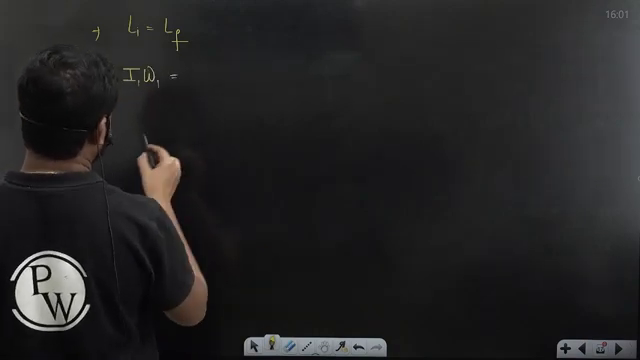 16:01
→ L₁ = L_f
I₁ω₁ =
PW